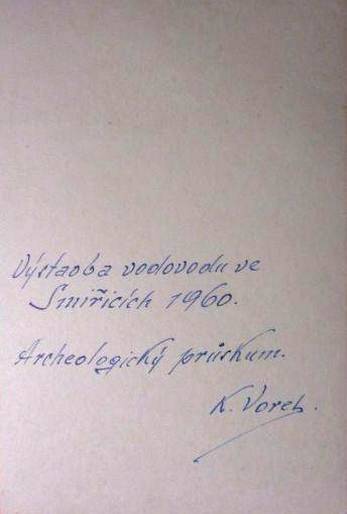 Výstavba vodovodu ve
Smiřicích 1960.
Archeologický průskum.
K. Vorel.